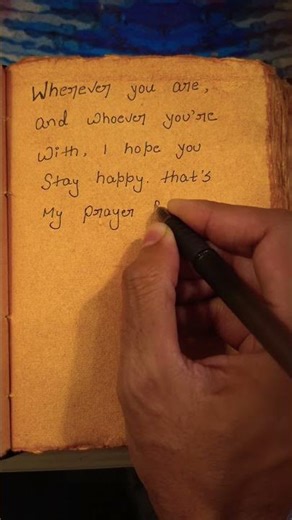 Wherever you are,
and whoever you're
With, I hope you
Stay happy. that's
My prayer